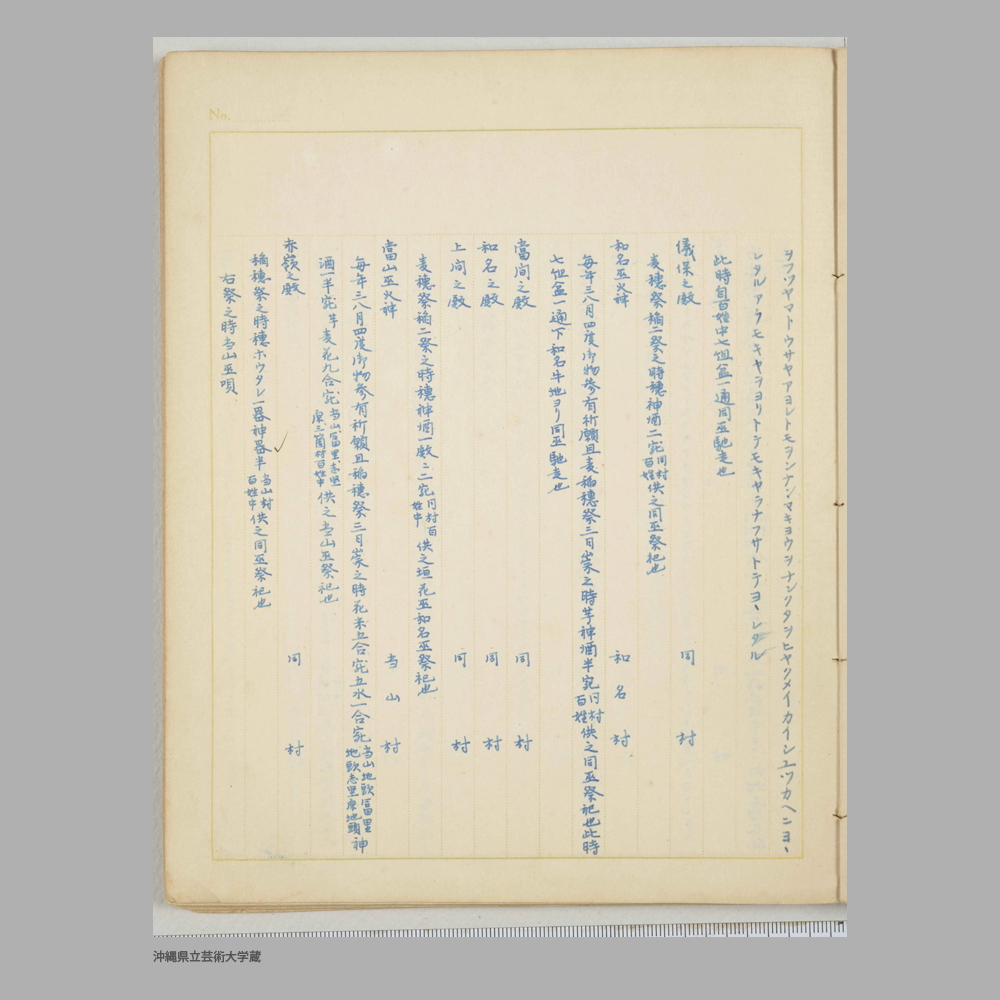 ヲフツヤマトウサヤアヨレトモヲンナンマキヨウヲナンクタンヒヤクメイカイシユツカヘニヨ、
レタルアクモキヤヲヨリトテモキヤラナフサトテヨ、レタル
此時自百姓中七組盆一通同巫馳走也
儀保之殿 同村
麦穗祭稲二祭之時穗神酒二宛同村百姓中供之同巫祭祀也
和名巫火神 和名村
毎年三八月四度御物参有祈願且麦稲穗祭三日崇之時芋神酒半宛同村百姓供之同巫祭祀也此時
七組盆一通下和名牛地ヨリ同巫馳走也
當间之殿 同村
和名之殿 同村
上间之殿 同村
麦穗祭稲二祭之時穗神酒一殿ニ二宛同村百姓中供之垣花巫和名巫祭祀也
當山巫火神 当山村
毎年三八月四度御物参有祈願且稲穗祭三日崇之時花米五合宛五水一合宛当山地頭冨里地頭志里原地頭神
酒一半宛芋麦花九合宛当山冨里志里原三箇村百姓中供之当山巫祭祀也
赤嶺之殿 同村
稲穗祭之時穗ホウタレ一器神器半当山村百姓中供之同巫祭祀也
右祭之時当山巫唄
No.
沖縄県立芸術大学蔵